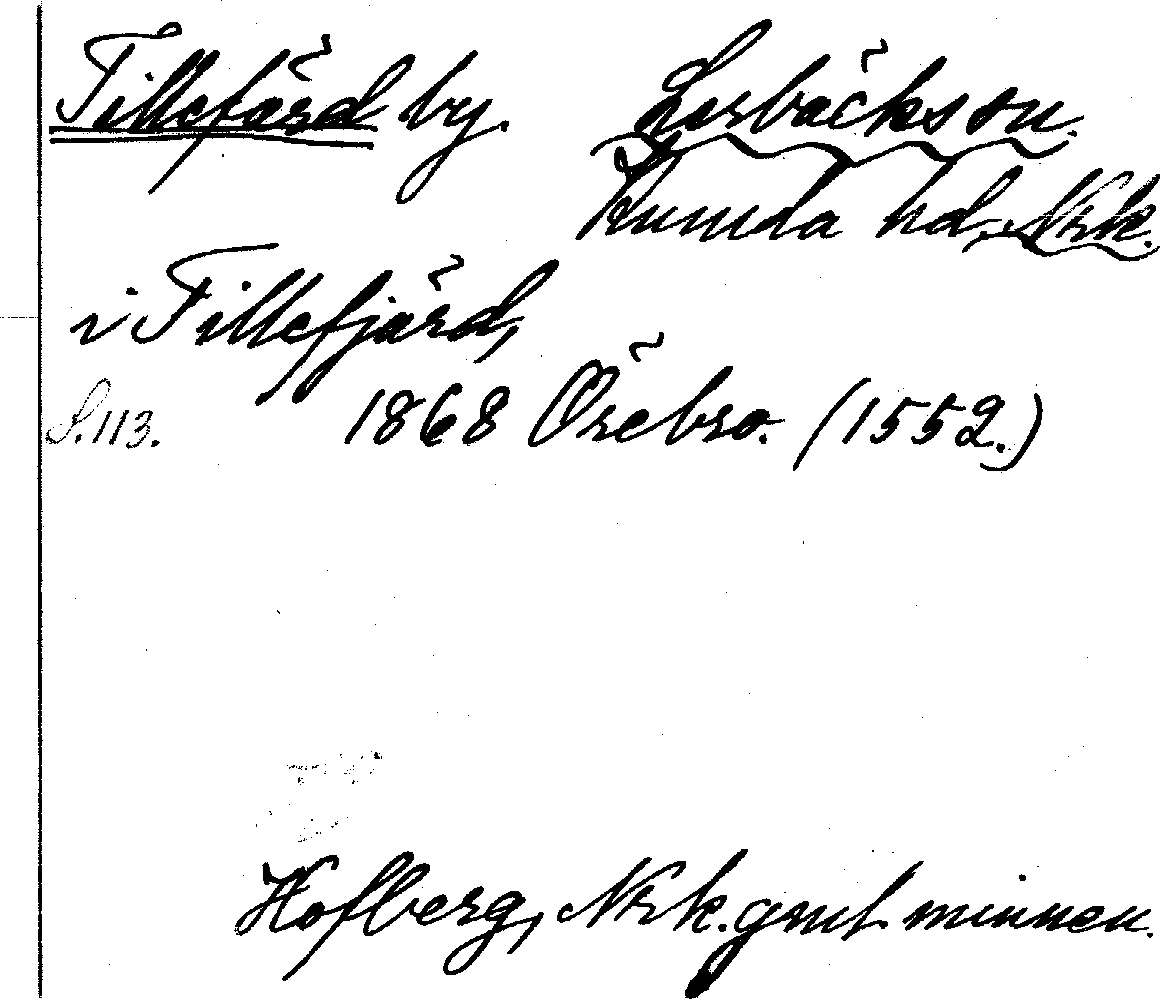 Tillefärd by. Lerbäcks sn.
Kumla hd, Nrk.
i Tillefjärd,
S. 113. 1868 Örebro. (1552.)
Hofberg, Nrk. gml minnen.